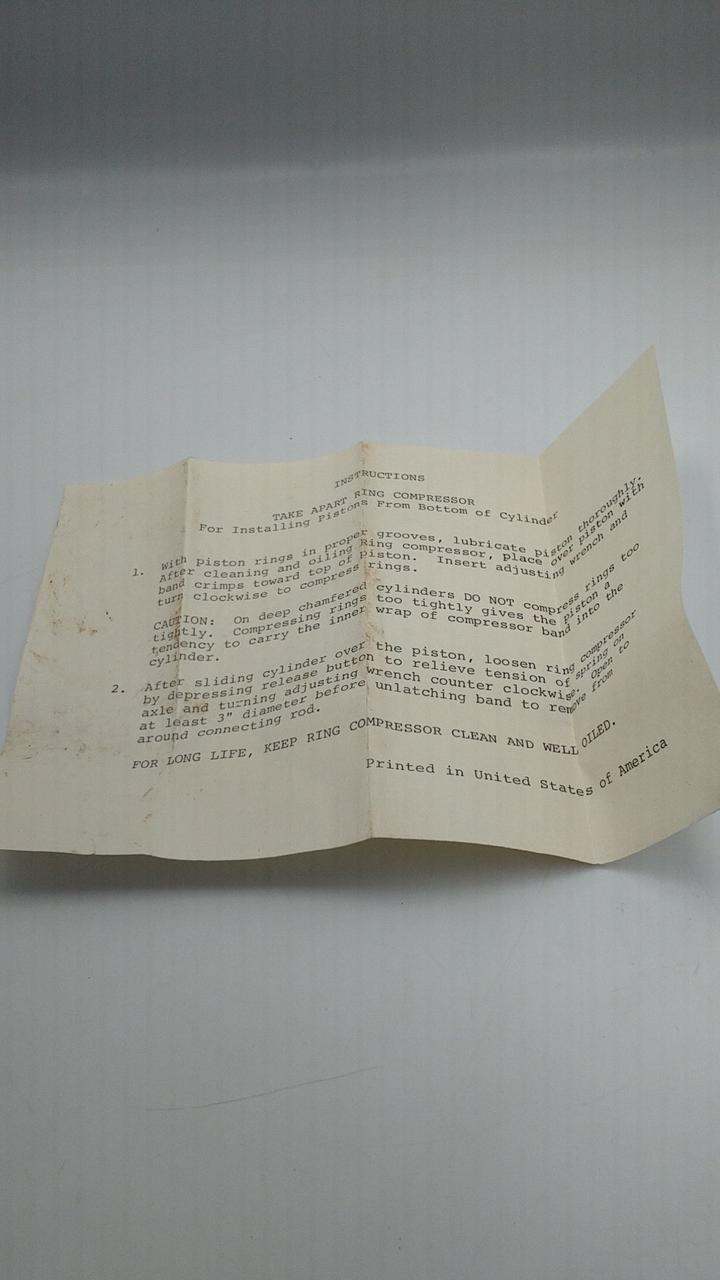 INSTRUCTIONS
TAKE APART RING COMPRESSOR
For Installing Pistons From Bottom of Cylinder
1. With piston rings in proper grooves, lubricate piston thoroughly.
After cleaning and oiling Ring compressor, place over piston with
band crimps toward top of piston. Insert adjusting wrench and
turn clockwise to compress rings.
CAUTION: On deep chamfered cylinders DO NOT compress rings too
tightly. Compressing rings too tightly gives the piston a
tendency to carry the inner wrap of compressor band into the
cylinder.
2. After sliding cylinder over the piston, loosen ring compressor
by depressing release button to relieve tension of spring on
axle and turning adjusting wrench counter clockwise. Open to
at least 3" diameter before unlatching band to remove from
around connecting rod.
FOR LONG LIFE, KEEP RING COMPRESSOR CLEAN AND WELL OILED.
Printed in United States of America